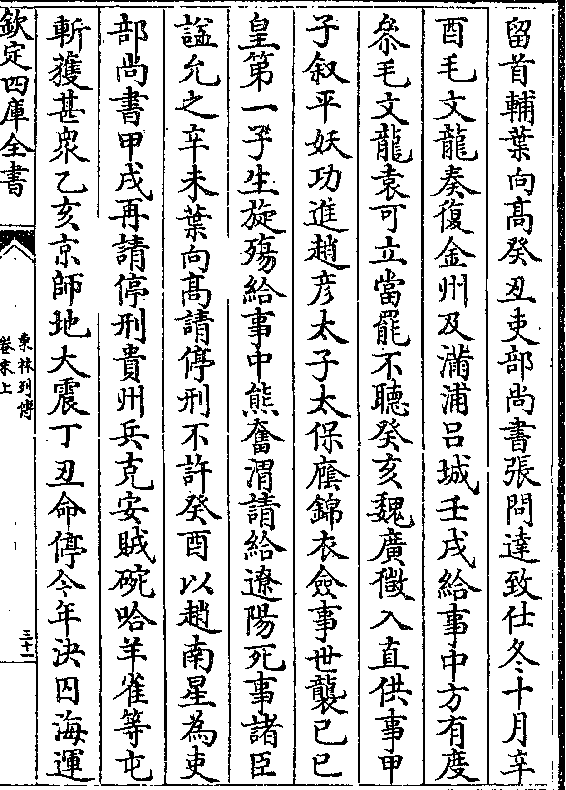 留首輔葉向髙癸丑吏部尚書張問達致仕冬十月辛
酉毛文龍奏復金州及滿浦吕城壬戌給事中方有度
叅毛文龍袁可立當罷不聽癸亥魏廣微入直供事甲
子叙平妖功進趙彦太子太保廕錦衣僉事世襲己巳
皇第一子生旋殤給事中熊奮渭請給遼陽死事諸臣
諡允之辛未葉向髙請停刑不許癸酉以趙南星為吏
部尚書甲戌再請停刑貴州兵克安賊碗哈羊雀等屯
斬獲甚衆乙亥京師地大震丁丑命停今年決囚海運
欽定四庫全書
東林列傳
卷末上
三十一